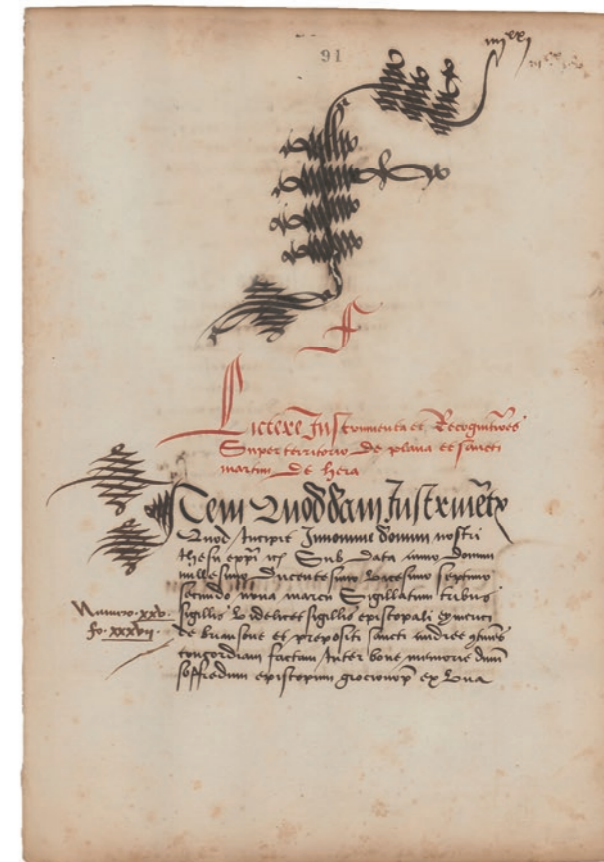 91
iiiixxxi
F
Littere Instrumenta et Recognitiões
Super territorio de plana et sancti
martini de hera
Item Quoddam Instrumẽtũ
Quod Incipit In nomine domini nostri
Ihesu xp̃i Sub data anno domini
millesimo ducentesimo vicesimo septimo
secundo nona marcii Sigillatum tribus
Numero xxv
sigillis videlicet sigillis episcopali eymerici
fo. xxxvii
de briansone et prepositi sancti andree
concordiam factam Inter bone memorie dnm
soffredum episcopum ex una